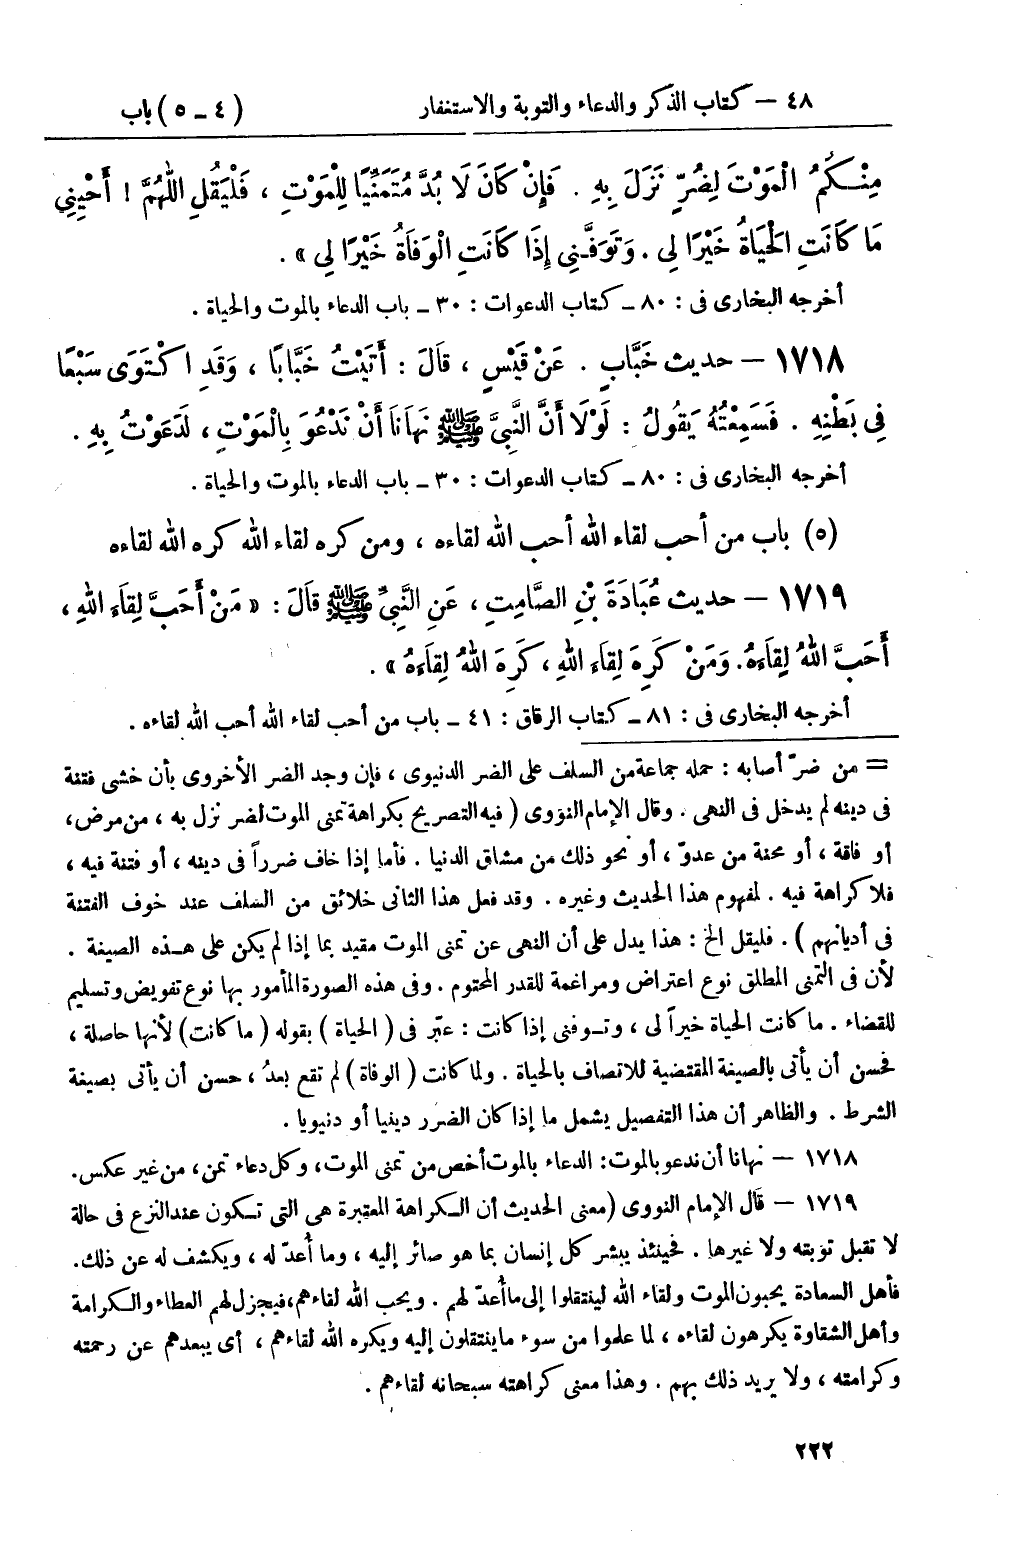 ٤٨ – كتاب الذكر والدعاء والتوبة والاستغفار (٤ ـ ٥) باب
مِنْكُمُ الْمَوْتَ لِضُرٍّ نَزَلَ بِهِ . فَإِنْ كَانَ لَا بُدَّ مُتَمَنِّيًا لِلْمَوْتِ ، فَلْيَقُلِ اللّٰهُمَّ ! أَحْيِنِي
مَا كَانَتِ الْحَيَاةُ خَيْرًا لِي . وَتَوَفَّنِي إِذَا كَانَتِ الْوَفَاةُ خَيْرًا لِي » .
أخرجه البخارى فى : ٨٠ ـ كتاب الدعوات : ٣٠ ـ باب الدعاء بالموت والحياة .
١٧١٨ – حديث خَبَّابٍ . عَنْ قَيْسٍ ، قَالَ : أَتَيْتُ خَبَّابًا ، وَقَدِ اكْتَوَى سَبْعًا
فِي بَطْنِهِ . فَسَمِعْتُهُ يَقُولُ : لَوْلَا أَنَّ النَّبِيَّ ﷺ نَهَانَا أَنْ نَدْعُوَ بِالْمَوْتِ ، لَدَعَوْتُ بِهِ .
أخرجه البخارى فى : ٨٠ ـ كتاب الدعوات : ٣٠ ـ باب الدعاء بالموت والحياة .
(٥) باب من أحب لقاء الله أحب الله لقاءه ، ومن كره لقاء الله كره الله لقاءه
١٧١٩ – حديث عُبَادَةَ بْنِ الصَّامِتِ ، عَنِ النَّبِيِّ ﷺ قَالَ : « مَنْ أَحَبَّ لِقَاءَ اللهِ ،
أَحَبَّ اللهُ لِقَاءَهُ. وَمَنْ كَرِهَ لِقَاءَ اللهِ ، كَرِهَ اللهُ لِقَاءَهُ » .
أخرجه البخارى فى : ٨١ ـ كتاب الرقاق : ٤١ ـ باب من أحب لقاء الله أحب الله لقاءه .
= من ضرّ أصابه : حمله جماعة من السلف على الضر الدنيوى ، فإن وجد الضر الأخروى بأن خشى فتنة
فى دينه لم يدخل فى النهى . وقال الإمام النووى ( فيه التصريح بكراهة تمنى الموت لضر نزل به ، من مرض،
أو فاقة ، أو محنة من عدوّ ، أو نحو ذلك من مشاق الدنيا . فأما إذا خاف ضرراً فى دينه ، أو فتنة فيه ،
فلا كراهة فيه . لمفهوم هذا الحديث وغيره . وقد فعل هذا الثانى خلائق من السلف عند خوف الفتنة
فى أديانهم ) . فليقل الخ : هذا يدل على أن النهى عن تمنى الموت مقيد بما إذا لم يكن على هذه الصيغة .
لأن فى التمنى المطلق نوع اعتراض ومراغمة للقدر المحتوم . وفى هذه الصورة المأمور بها نوع تفويض وتسليم
للقضاء . ما كانت الحياة خيراً لى ، وتوفنى إذا كانت : عبّر فى ( الحياة ) بقوله ( ما كانت ) لأنها حاصلة ،
فحسن أن يأتى بالصيغة المقتضية للاتصاف بالحياة . ولما كانت ( الوفاة ) لم تقع بعدُ ، حسن أن يأتى بصيغة
الشرط . والظاهر أن هذا التفصيل يشمل ما إذا كان الضرر دينيا أو دنيويا .
١٧١٨ – نهانا أن ندعو بالموت : الدعاء بالموت أخص من تمنى الموت ، وكل دعاء تمن ، من غير عكس.
١٧١٩ – قال الإمام النووى (معنى الحديث أن الكراهة المعتبرة هى التى تكون عند النزع فى حالة
لا تقبل توبته ولا غيرها . فحينئذ يبشر كل إنسان بما هو صائر إليه ، وما أُعدّ له ، ويكشف له عن ذلك.
فأهل السعادة يحبون الموت ولقاء الله لينتقلوا إلى ما أُعدّ لهم . ويحب الله لقاءهم، فيجزل لهم العطاء والكرامة
وأهل الشقاوة يكرهون لقاءه ، لما علموا من سوء ما ينتقلون إليه ويكره الله لقاءهم ، أى يبعدهم عن رحمته
وكرامته ، ولا يريد ذلك بهم . وهذا معنى كراهته سبحانه لقاءهم .
٢٢٢